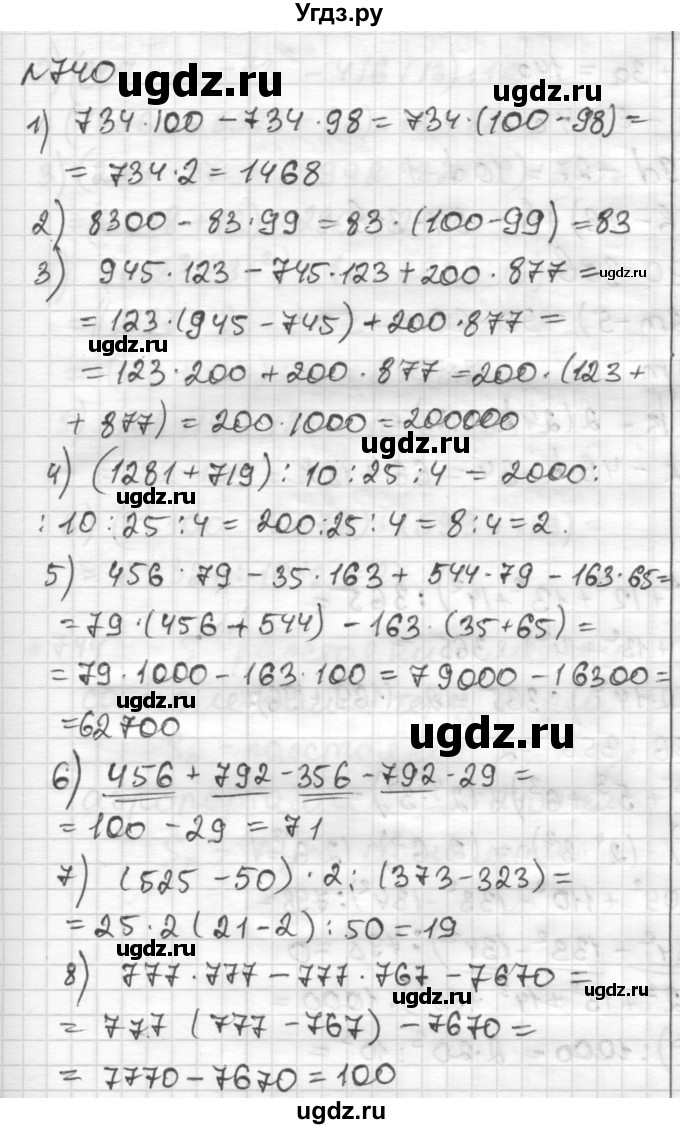 Угдз.ру
№740
ugdz.ru
1) 734·100 - 734·98 = 734·(100-98) =
= 734·2 = 1468
2) 8300 - 83·99 = 83·(100-99) = 83
3) 945·123 - 745·123 + 200·877 =
ugdz.ru
= 123·(945-745) + 200·877 =
ugdz.ru
= 123·200 + 200·877 = 200·(123+
+ 877) = 200·1000 = 200000
ugdz.ru
4) (1281+719) : 10 : 25 : 4 = 2000:
ugdz.ru
: 10 : 25 : 4 = 200:25:4 = 8:4 = 2.
5) 456·79 - 35·163 + 544·79 - 163·65=
= 79·(456+544) - 163·(35+65) =
= 79·1000 - 163·100 = 79000 - 16300 =
ugdz.ru
= 62700
ugdz.ru
6) 456 + 792 - 356 - 792 - 29 =
= 100 - 29 = 71
7) (525-50)·2 : (373-323) =
= 25·2 (21-2) : 50 = 19
ugdz.ru
8) 777·777 - 777·767 - 7670 =
ugdz.ru
ugdz.ru
= 777 (777-767) - 7670 =
= 7770 - 7670 = 100
ugdz.ru